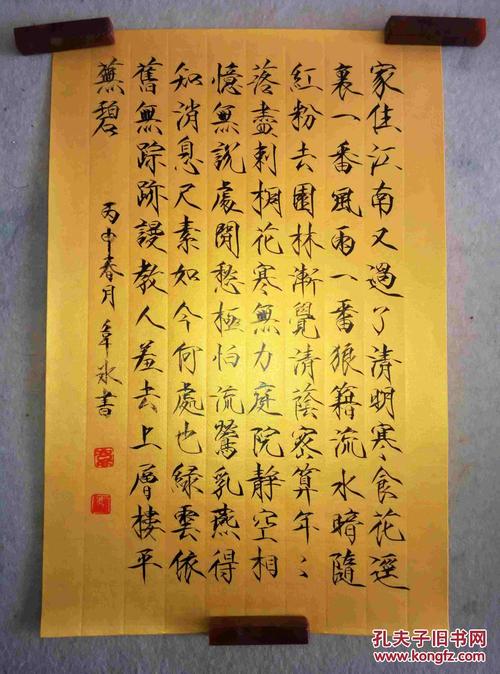 家住江南又過了清明寒食花逕
裏一番風雨一番狼籍流水暗隨
紅粉去園林漸覺清蔭密算年〻
落盡刺桐花寒無力庭院靜空相
憶無說處閒愁極怕流鶯乳燕得
知消息尺素如今何處也綠雲依
舊無踪跡謾教人羞去上層樓平
蕪碧
丙申春月 韋冰書
孔夫子旧书网
www.kongfz.com